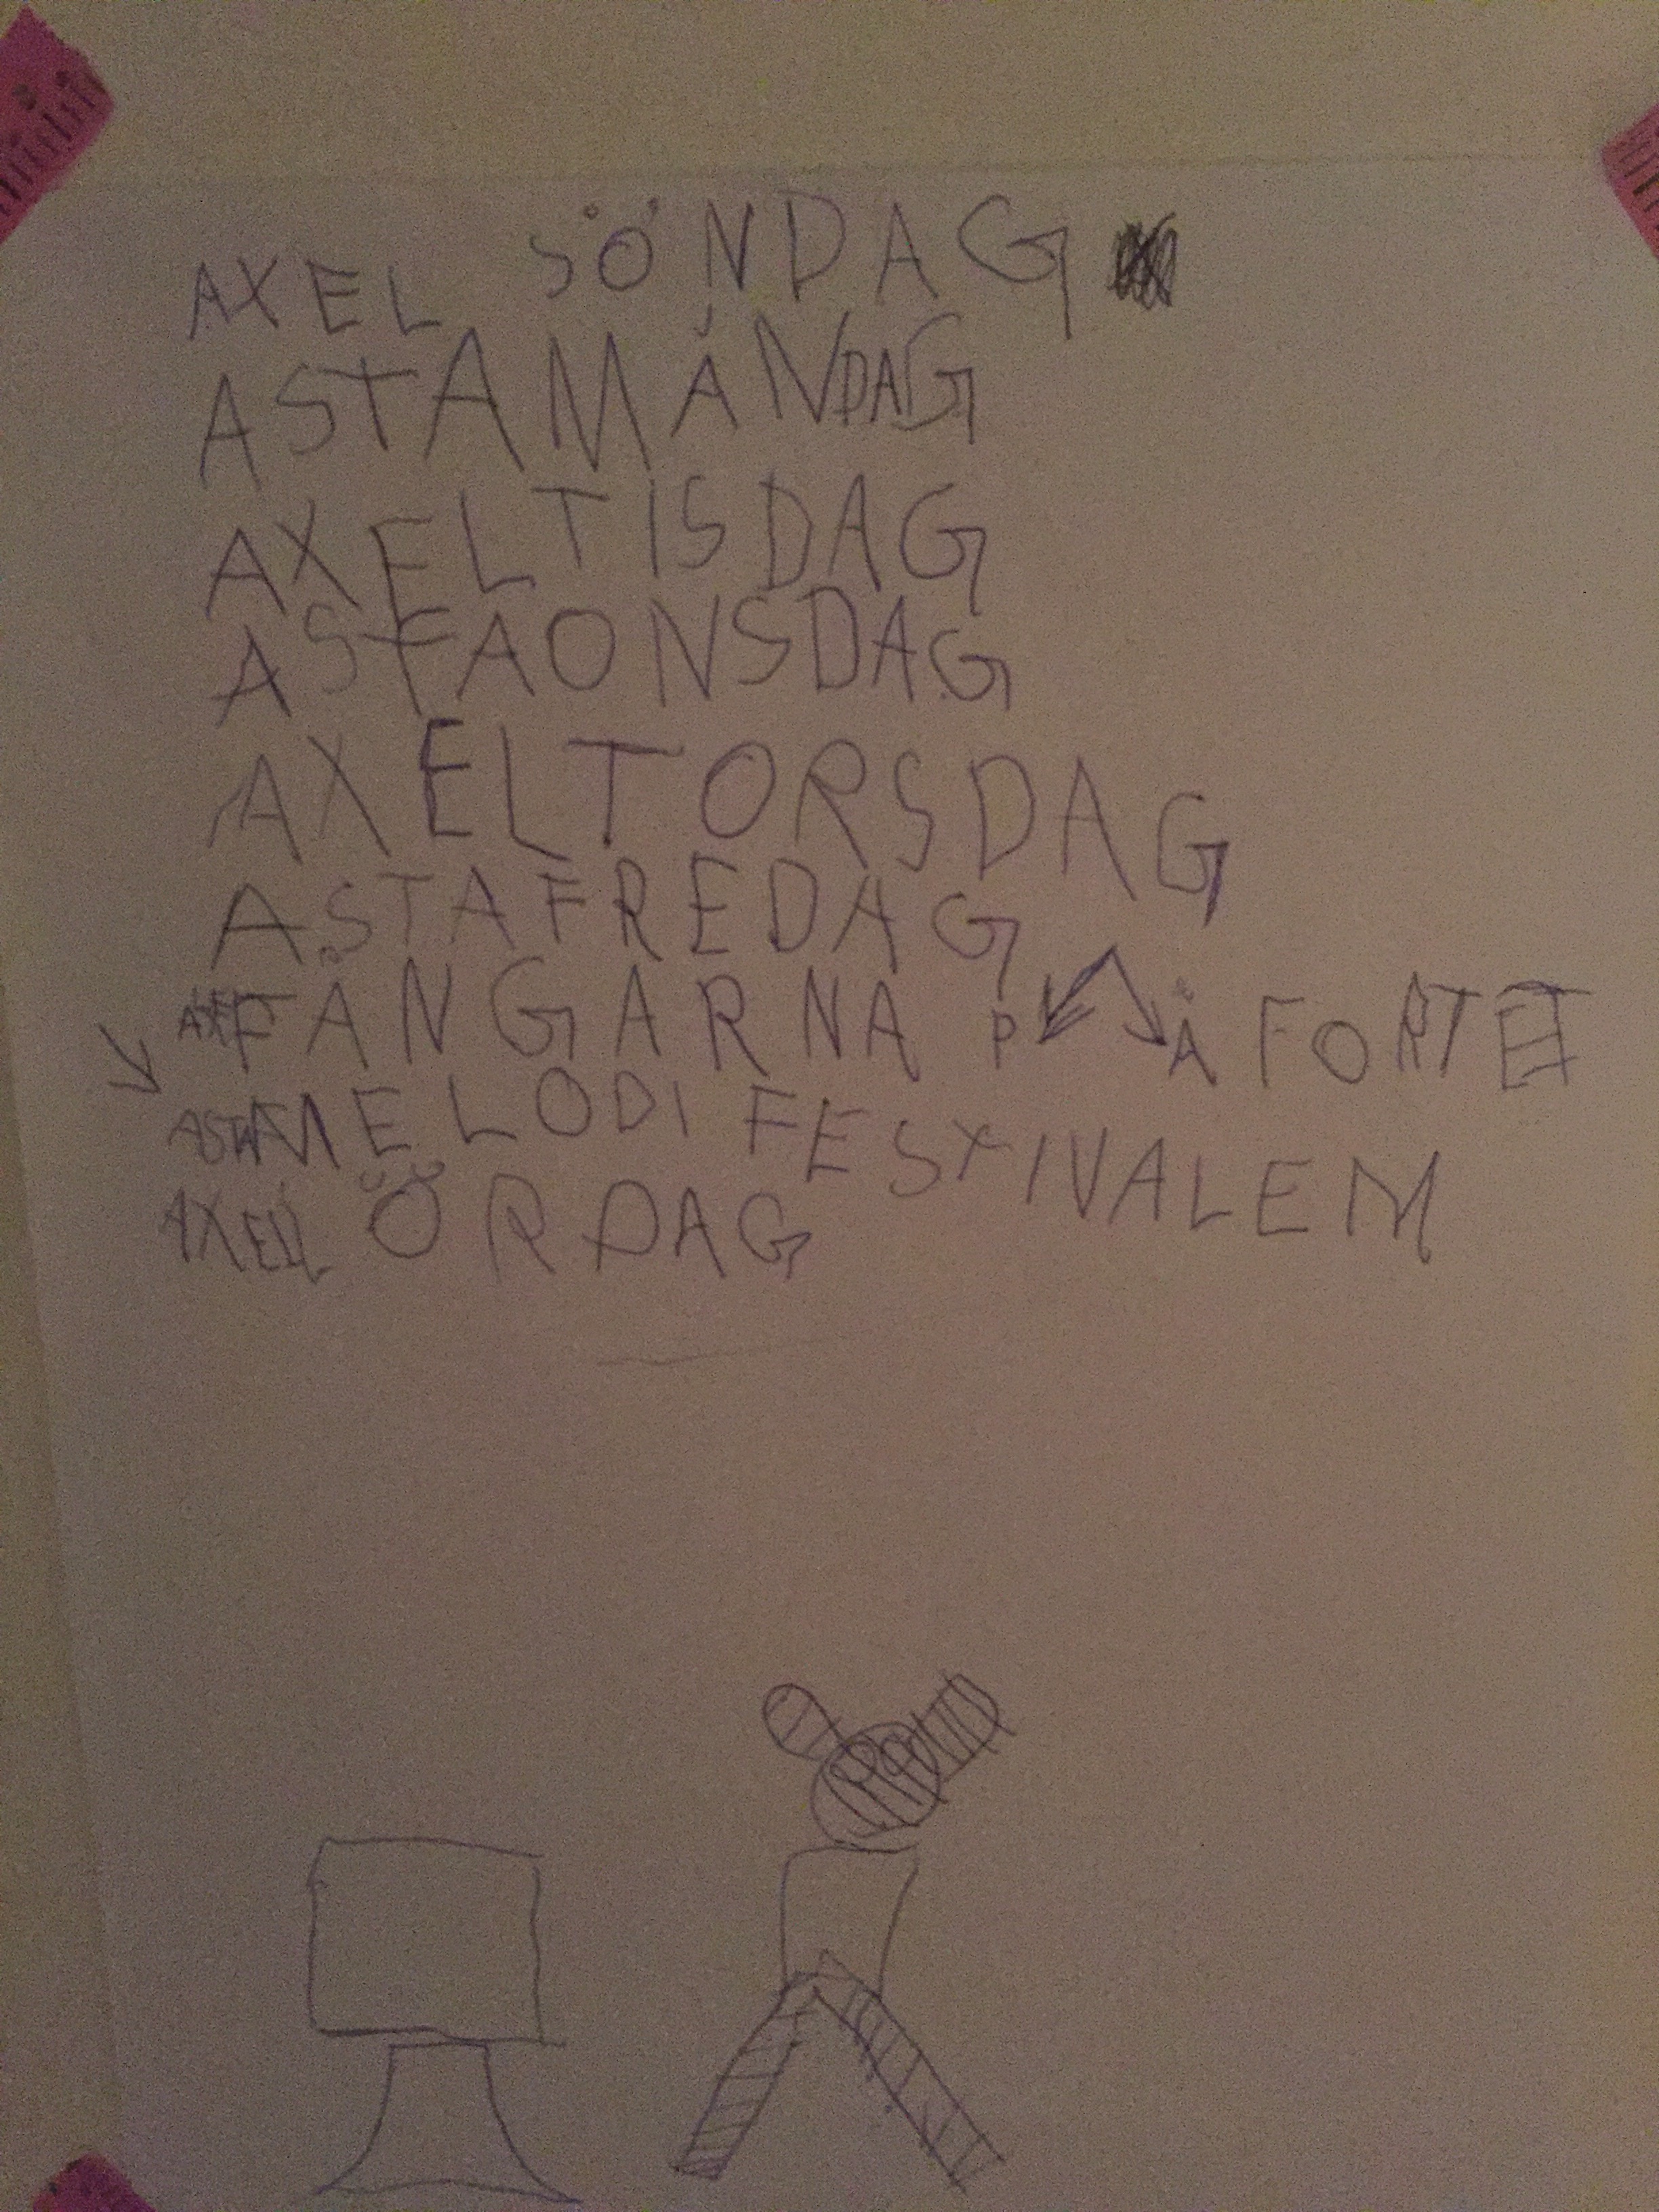 AXEL SÖNDAG
ASTA MÅNDAG
AXEL TISDAG
ASTA ONSDAG
AXEL TORSDAG
ASTA FREDAG
AXEL FÅNGARNA PÅ FORTET
ASTA MELODIFESTIVALEM
AXEL LÖRDAG